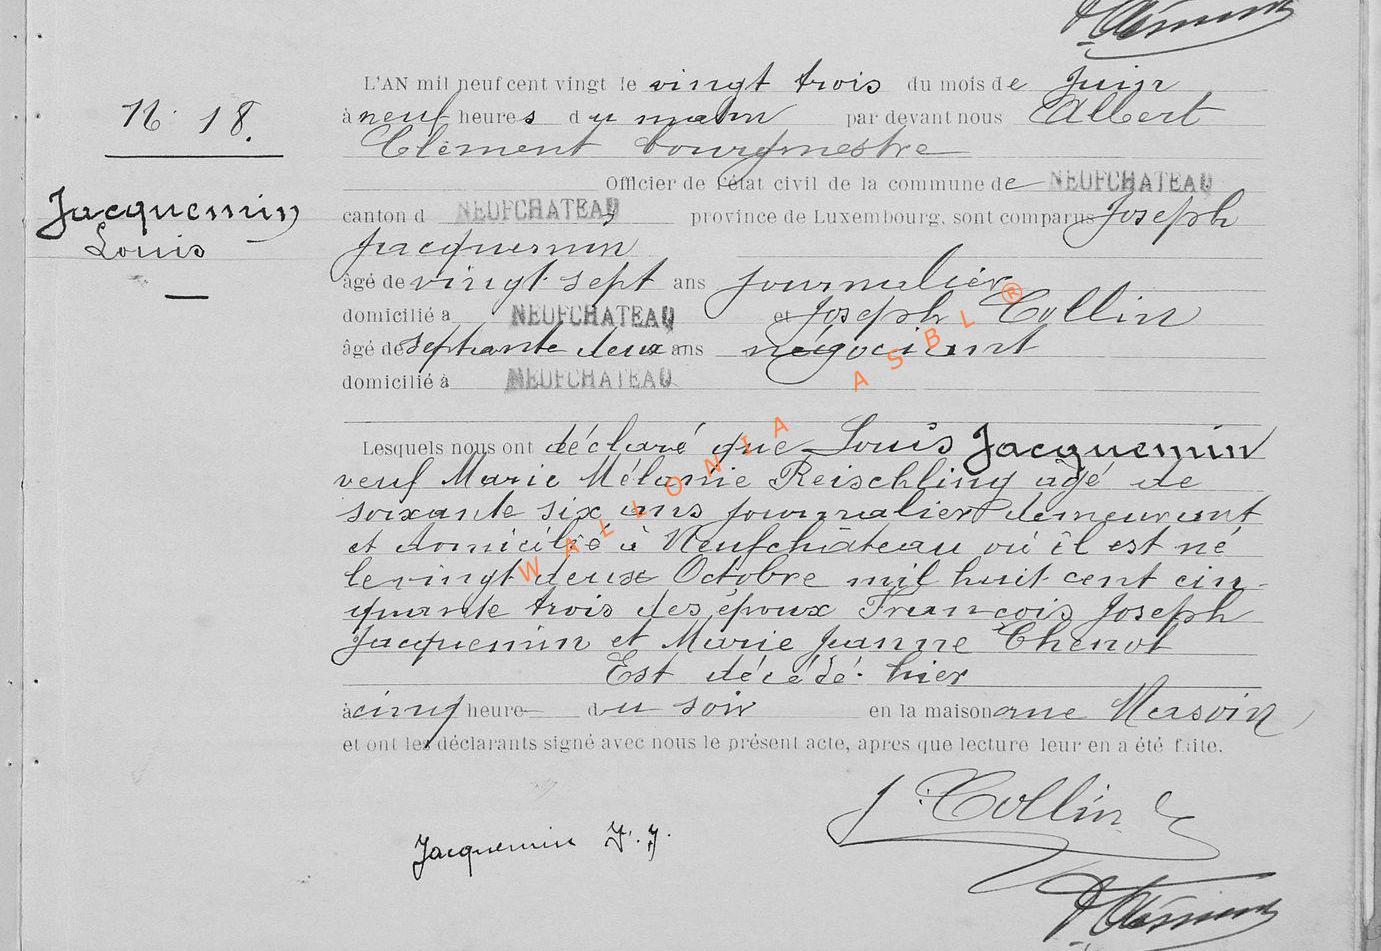 A Clément
L'AN mil neuf cent vingt le vingt trois du mois de Juin
N° 18.
à neuf heures du matin par devant nous Albert
Clément bourgmestre
Officier de l'état civil de la commune de NEUFCHATEAU
Jacquemin
Louis
canton d NEUFCHATEAU province de Luxembourg, sont comparus Joseph
Jacquemin
âgé de vingt sept ans journalier
domicilié à NEUFCHATEAU et Joseph Collin
âgé de septante deux ans négociant
domicilié à NEUFCHATEAU
Lesquels nous ont déclaré que Louis Jacquemin
veuf Marie Mélanie Reischling âgé de
soixante six ans journalier demeurant
et domicilié à Neufchâteau où il est né
le vingt deux Octobre mil huit cent cin-
quante trois des époux François Joseph
Jacquemin et Marie Jeanne Chenot
Est décédé hier
à cinq heure du soir en la maison rue
et ont les déclarants signé avec nous le présent acte, après que lecture leur en a été faite.
J. Collin
Jacquemin J. J.
A Clément
WALLONIA ASBL ®